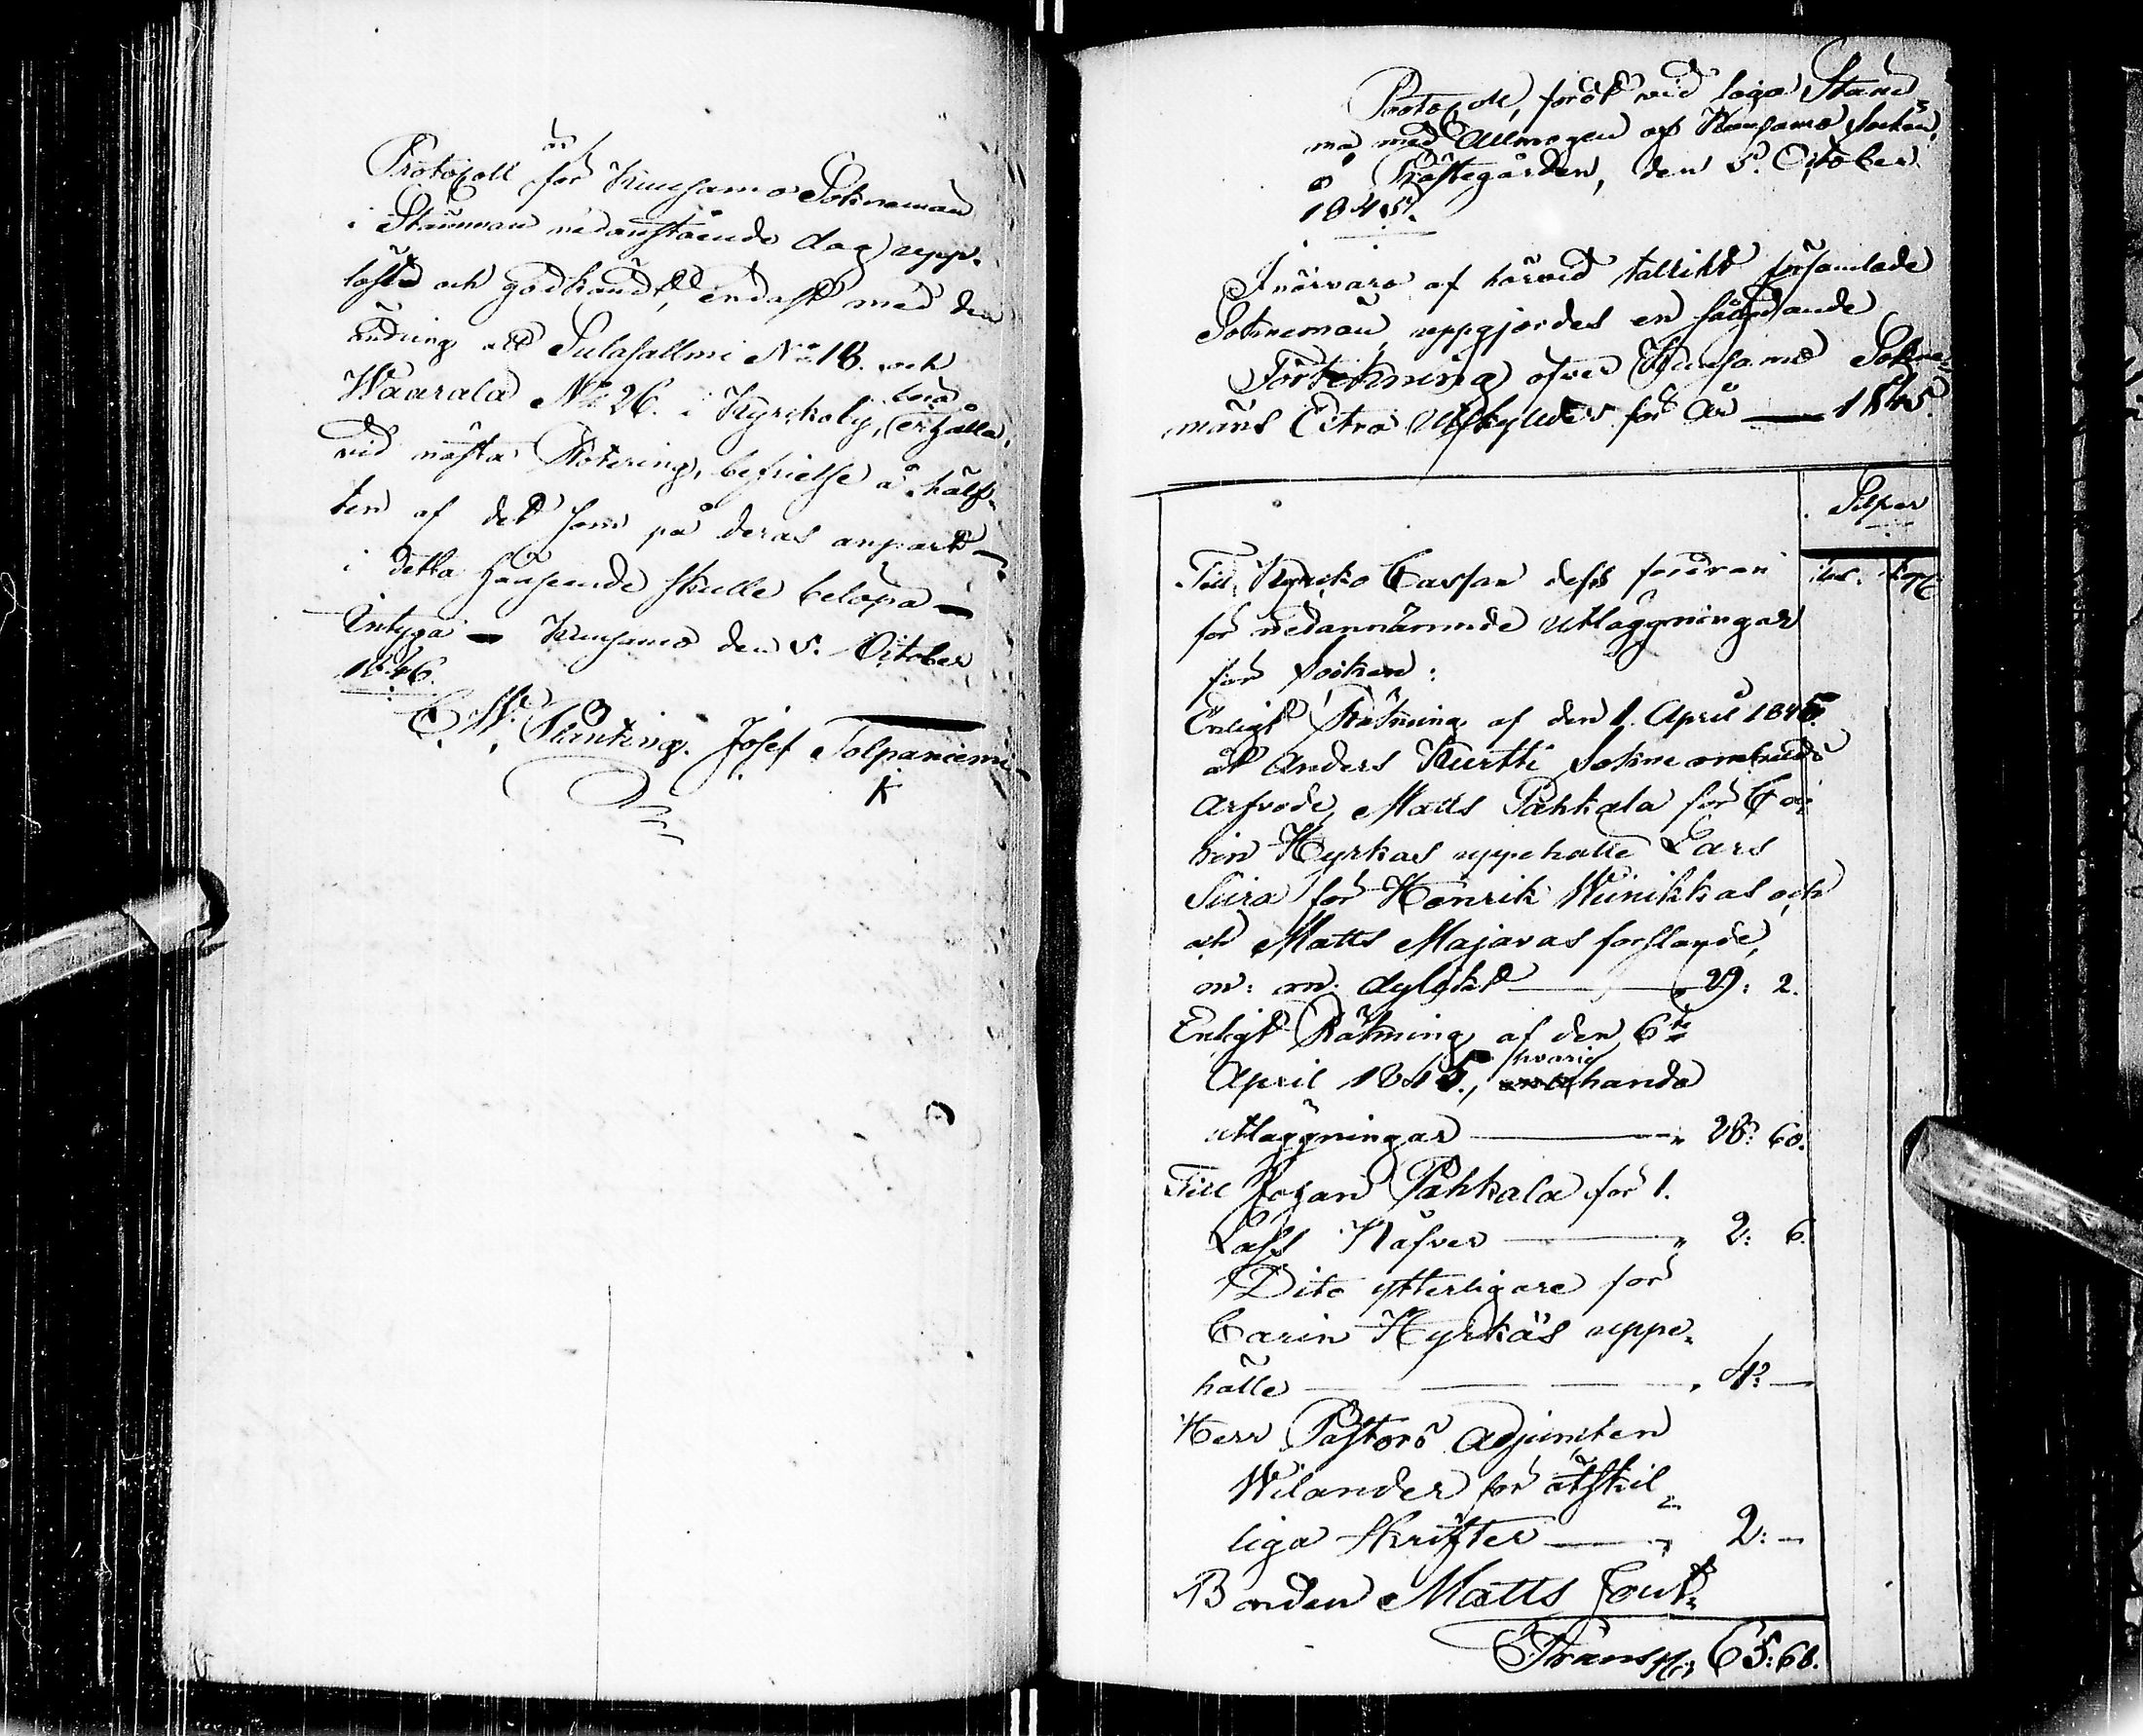 Protocoll
är
för Kuusamo Sokneman
i Stämman nedanstående dag upp-
läste och godkändt, endast med den
ändring att Sulasallmi No 18. och
Waarala No 26. i Kyrckoby, erhålla
vid nästa Rotering, befrielse å hälf-
ten af det som på deras anpart
i detta hänseende skulle belöpa
Intyga Kuusamo den 5. October
1846.
C. W. Planting. Josef Tolpaniemi
K
Protocoll, fördt vid laga Stäm-
ma med Allmogen af Kuusamo Socken,
å Prästegården, den 5. October
1845.
I närvaro af härvid talrikt församlade
Sokneman, uppgjordes en sådan
Förtekning öfver Kuusamo Sokne-
mäns Extra Utskylder för år 1845.
Silfver
Rub. Kop:
Till Kyrcko Cassan dess fordran
för nedannämnde utläggningar
för socken:
Enligt Räkning af den 1. April 1845.
åt Anders Kurtti Sokne ombuds
arfvode, Matts Pahkala för Ca-
rin Hyrkas uppehälle Lars
Siira för Henrik Winikkas och
och Matts Majavas forslande,
m: m: dylikt 29: 2.
Enligt Räkning af den 6te
April 1845., hvarje
handa
utläggningar 28: 60.
Till Johan Pahkala för 1.
Lass Näfver 2: 6.
Dito ytterligare för
Carin Hyrkäs uppe-
hälle 4: —
Herr Pastors Adjuncten
Wilander för åtskil-
liga Skrifter 2: —
Bonden Matts
Transp: 65:68.